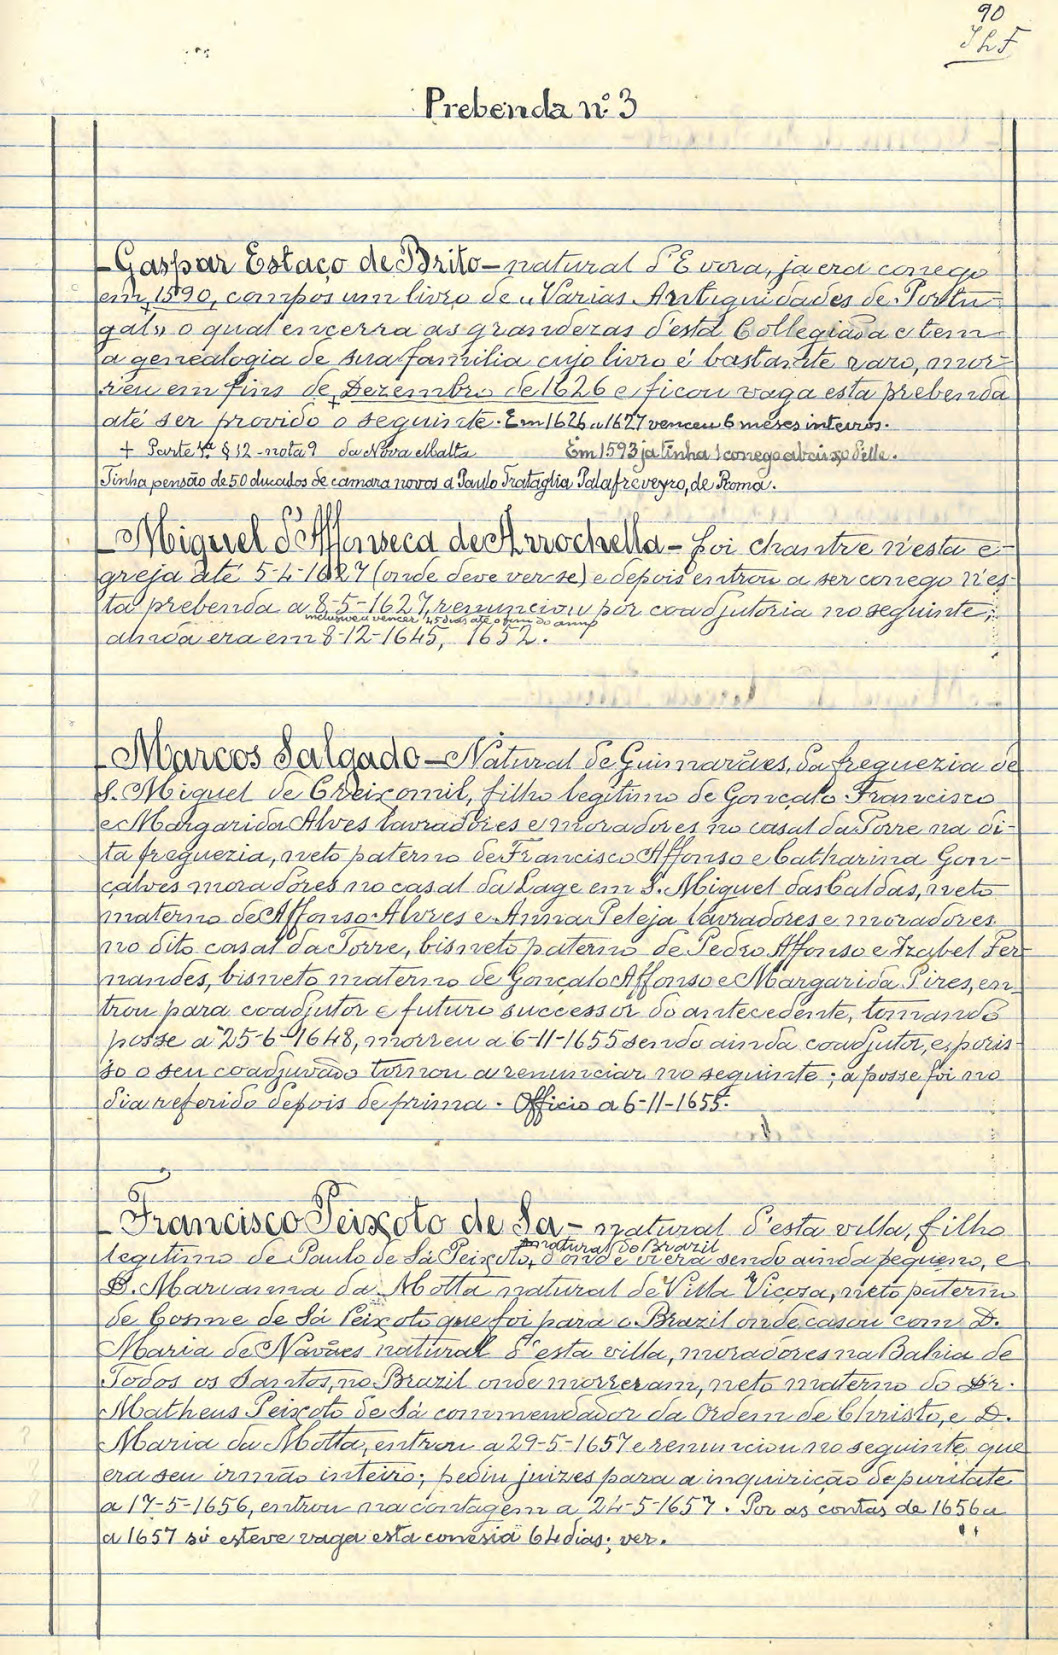 90
Prebenda nº 3
Gaspar Estaço de Brito – natural d'Evora, ja era conego
em 1590, compôs um livro de „Varias Antiguidades de Portu-
gal" o qual encerra as grandezas d'esta Collegiada e tem
a genealogia de sua familia cujo livro é bastante raro, mor-
reu em fins de Dezembro de 1626 e ficou vaga esta prebenda
até ser provido o seguinte. Em 1626 a 1627 venceu 6 meses inteiros.
+ Parte 4.ª § 12 - nota 9 da Nova Malta Em 1593 ja tinha 1 conego abaixo d'elle.
Tinha pensão de 50 ducados de camara novos a Paulo Trataglia Palafreveyro, de Roma.
Miguel d'Affonseca de Arrochella – foi chantre n'esta e-
greja até 5-4-1627 (onde deve ver-se) e depois entrou a ser conego n'es-
ta prebenda a 8-5-1627, renunciou por coadjutoria no seguinte;
inclusive a vencer 45 dias até o fim do anno
ainda era em 8-12-1645, 1652.
Marcos Salgado – Natural de Guimarães, da freguezia de
S. Miguel de Creixomil, filho legitimo de Gonçalo Francisco
e Margarida Alves lavradores e moradores no casal da Torre na di-
ta freguezia, neto paterno de Francisco Affonso e Catharina Gon-
çalves moradores no casal da Lage em S. Miguel das Caldas, neto
materno de Affonso Alvres e Anna Peleja lavradores e moradores
no dito casal da Torre, bisneto paterno de Pedro Affonso e Izabel Fer-
nandes, bisneto materno de Gonçalo Affonso e Margarida Pires, en-
trou para coadjutor e futuro successor do antecedente, tomando
posse a 25-6-1648, morreu a 6-11-1655 sendo ainda coadjutor, e por is-
so o seu coadjuvado tornou a renunciar no seguinte; a posse foi no
dia referido depois de prima. Officio a 6-11-1655.
Francisco Peixoto de Sa – natural d'esta villa, filho
natural do Brazil
legitimo de Paulo de Sá Peixoto, d'onde viera sendo ainda pequeno, e
D. Marianna da Motta natural de Villa Viçosa, neto paterno
de Cosme de Sá Peixoto que foi para o Brazil onde casou com D.
Maria de Navães natural d'esta villa, moradores na Bahia de
Todos os Santos, no Brazil onde morreram, neto materno do Dr.
Matheus Peixoto de Sá commendador da Ordem de Christo, e D.
Maria da Motta, entrou a 29-5-1657 e renunciou no seguinte que
era seu irmão inteiro; pediu juizes para a inquirição de puritate
a 17-5-1656, entrou na contagem a 24-5-1657. Por as contas de 1656 a
a 1657 só esteve vaga esta conesia 64 dias; ver.